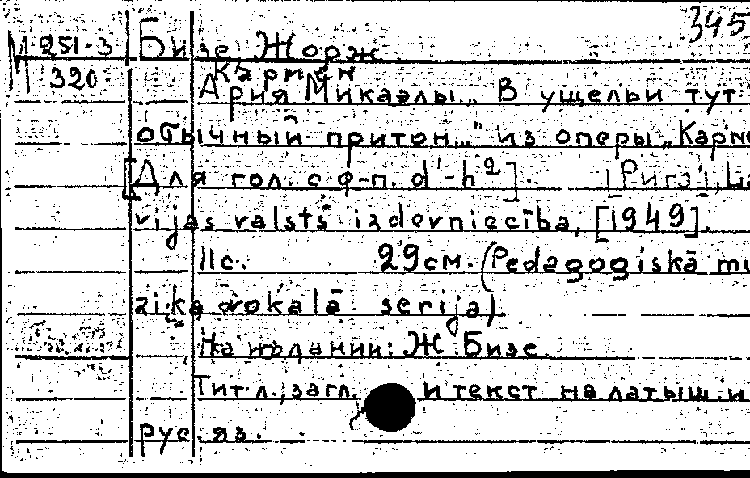 345
М 251-3 Бизе Жорж
320 Кармен
Ария Микаэлы „В ущельи тут
обычный притон..." из оперы „Карме
[Для гол. с ф-п. d'-h²]. [Рига], La
vijas valsts izdevniecība, [1949].
11с. 29см. (Pedagogiskā mu
zika vokalā serija)
На издании: Ж Бизе
Тит. л., загл. и текст на латыш. и
рус. яз.